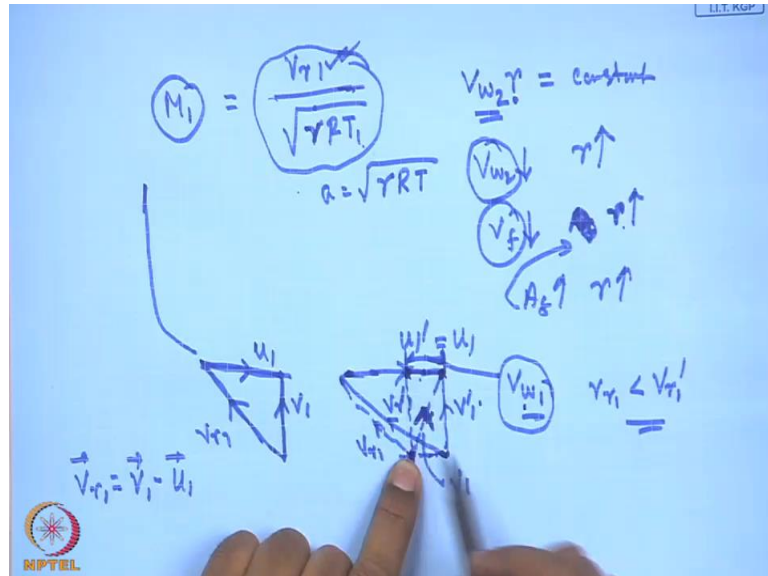 I.I.T. KGP
M₁ = Vr₁ / √γRT₁
a = √γRT
Vw₂ r = constant
Vw₂↓ r↑
Vf↓ r↑
Af↑ r↑
u₁
V₁
Vr₁
V⃗r₁ = V⃗₁ - u⃗₁
u₁' = u₁
Vw₁
V₁'
Vr₁
V₁
Vr₁ < Vr₁'
NPTEL